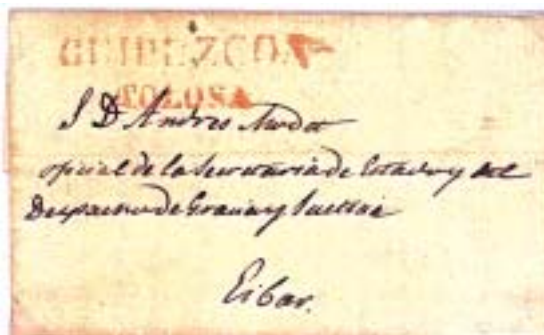 GUIPUZCOA
TOLOSA
S D Andres
oficial de la Secretaria de Estado y del
Despacho de Gracia y Justicia
Eibar.